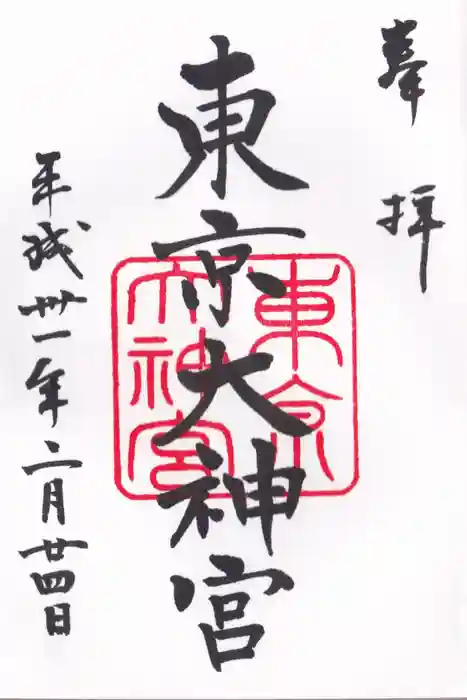 奉拝
東京大神宮
東京
大神宮
平成卅一年二月廿四日